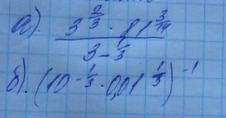 а). \frac{3^{\frac{2}{3}} \cdot 81^{\frac{3}{14}}}{3^{-\frac{1}{3}}}
б). (10^{-\frac{1}{3}} \cdot 0,01^{\frac{1}{3}})^{-1}